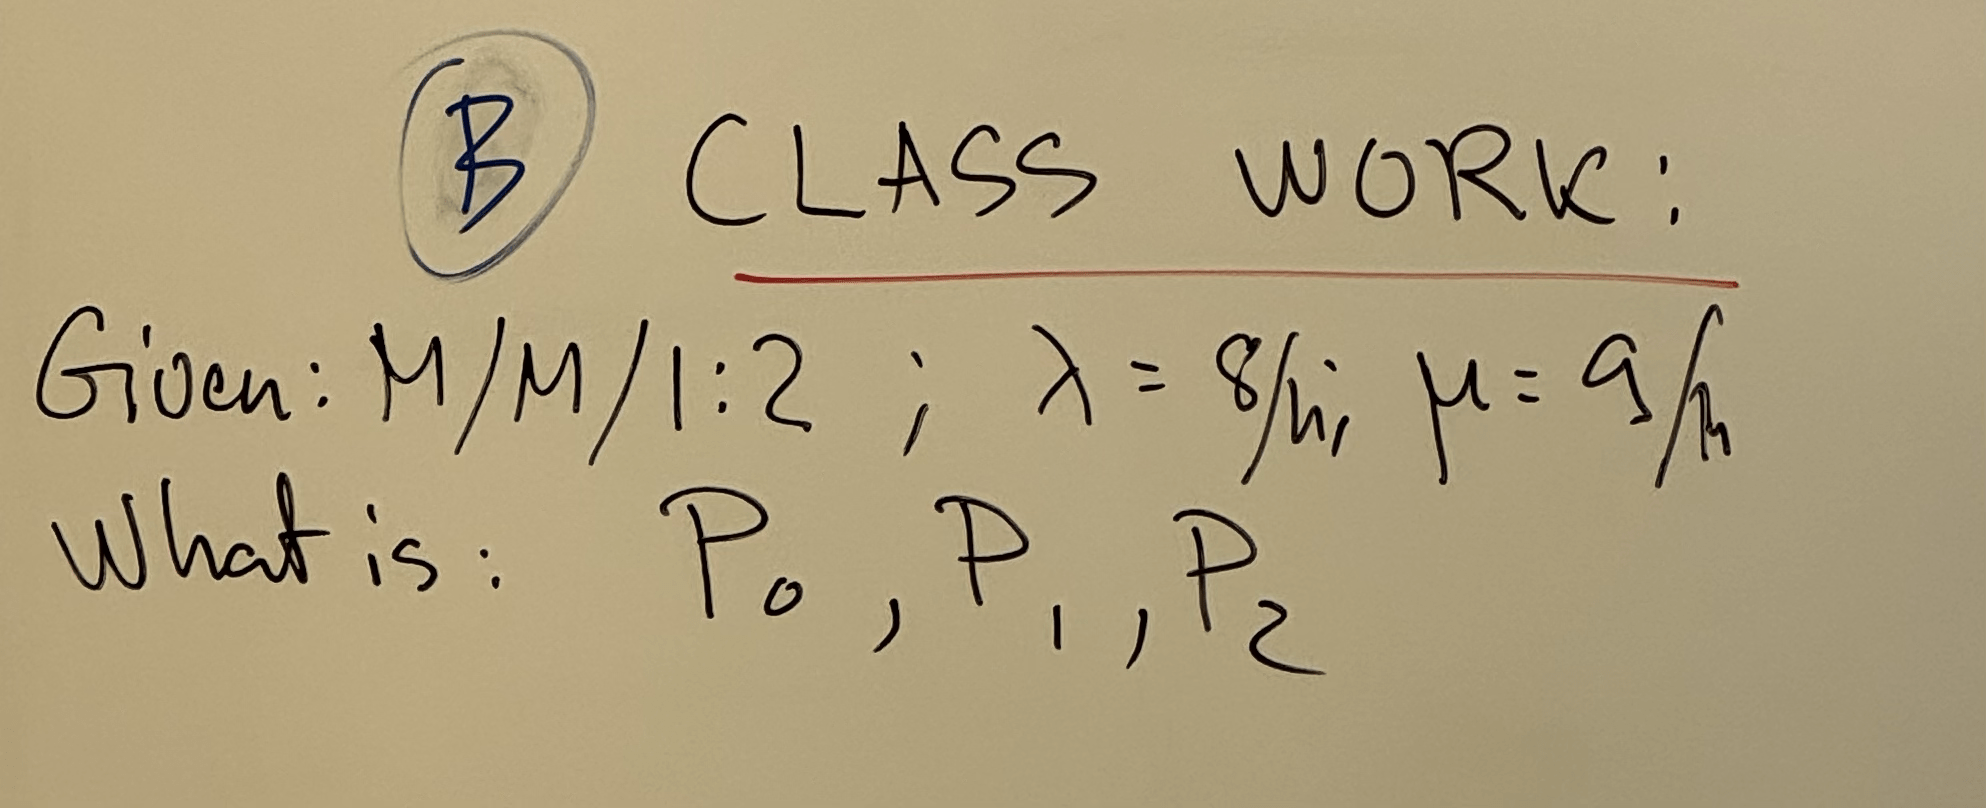 B CLASS WORK:
Given: M/M/1:2 ; λ = 8/h; μ = 9/h
What is: P₀, P₁, P₂